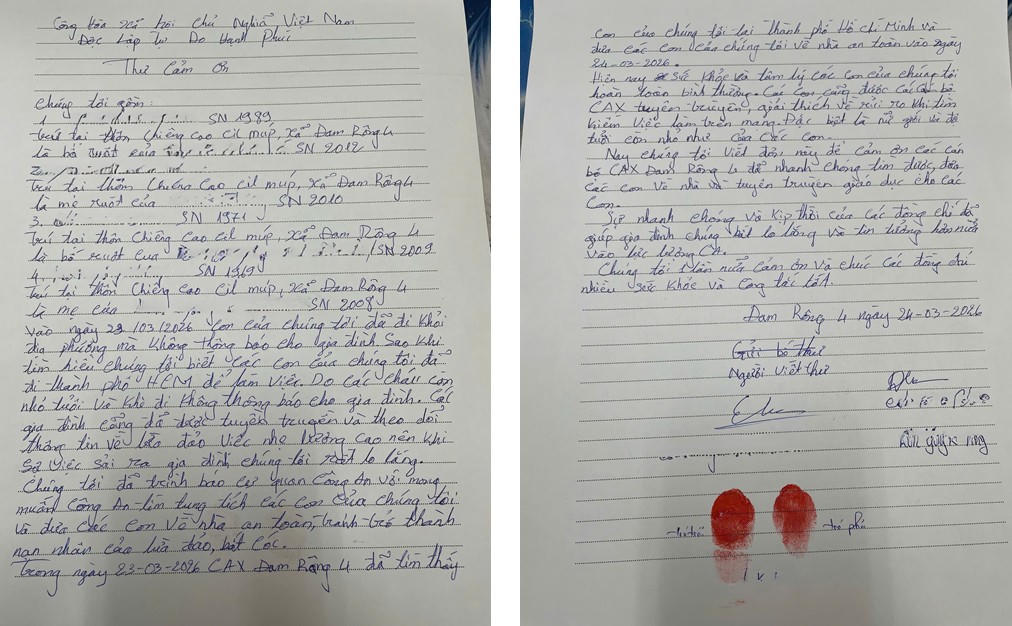 Cộng Hòa Xã Hội Chủ Nghĩa Việt Nam
Độc Lập Tự Do Hạnh Phúc
Thư Cảm Ơn
Chúng tôi gồm:
1. SN 1989
trú tại thôn Chiêng Cao Cil Múp, xã Đam Rông 4
là bố ruột của SN 2012
2.
Trú tại thôn Chiêng Cao Cil Múp, xã Đam Rông 4
là mẹ ruột của SN 2010
3. SN 1971
Trú tại thôn Chiêng Cao Cil Múp, xã Đam Rông 4
là bố ruột của SN 2009
4. SN 1969
trú tại thôn Chiêng Cao Cil Múp, xã Đam Rông 4
là mẹ của SN 2008
Vào ngày /03/2026 con của chúng tôi đã đi khỏi
địa phương mà không thông báo cho gia đình. Sao khi
tìm hiểu chúng tôi biết các con của chúng tôi đã
đi thành phố HCM để làm việc. Do các cháu còn
nhỏ tuổi và khi đi không thông báo cho gia đình. Các
gia đình cũng đã được tuyên truyền và theo dõi
thông tin về lừa đảo việc nhẹ lương cao nên khi
sự việc sải ra gia đình chúng tôi rất lo lắng.
Chúng tôi đã trình báo cơ quan Công An với mong
muốn Công An tìm tung tích các con của chúng tôi
và đưa các con về nhà an toàn, tránh trở thành
nạn nhân của lừa đảo, bắt cóc.
Trong ngày 23-03-2026 CAX Đam Rông 4 đã tìm thấy
con của chúng tôi tại thành phố Hồ Chí Minh và
đưa các con của chúng tôi về nhà an toàn vào ngày
24-03-2026.
Hiện nay sức khỏe và tâm lý các con của chúng tôi
hoàn toàn bình thường. Các con cũng được các bộ
CAX tuyên truyền, giải thích về rủi ro khi tìm
kiếm việc làm trên mạng. Đặc biệt là nữ giới và độ
tuổi còn nhỏ như của các con.
Nay chúng tôi viết đơn này để cảm ơn các cán
bộ CAX Đam Rông 4 đã nhanh chóng tìm được, đưa
các con về nhà và tuyên truyền giáo dục cho các
con.
Sự nhanh chóng và kịp thời của các đồng chí đã
giúp gia đình chúng bớt lo lắng và tin tưởng hơn nữa
vào lực lượng CA.
Chúng tôi 1 lần nữa cảm ơn và chúc các đồng chí
nhiều sức khỏe và công tác tốt.
Đam Rông 4 ngày 24-03-2026
Người viết thư
trỏ trái
trỏ phải